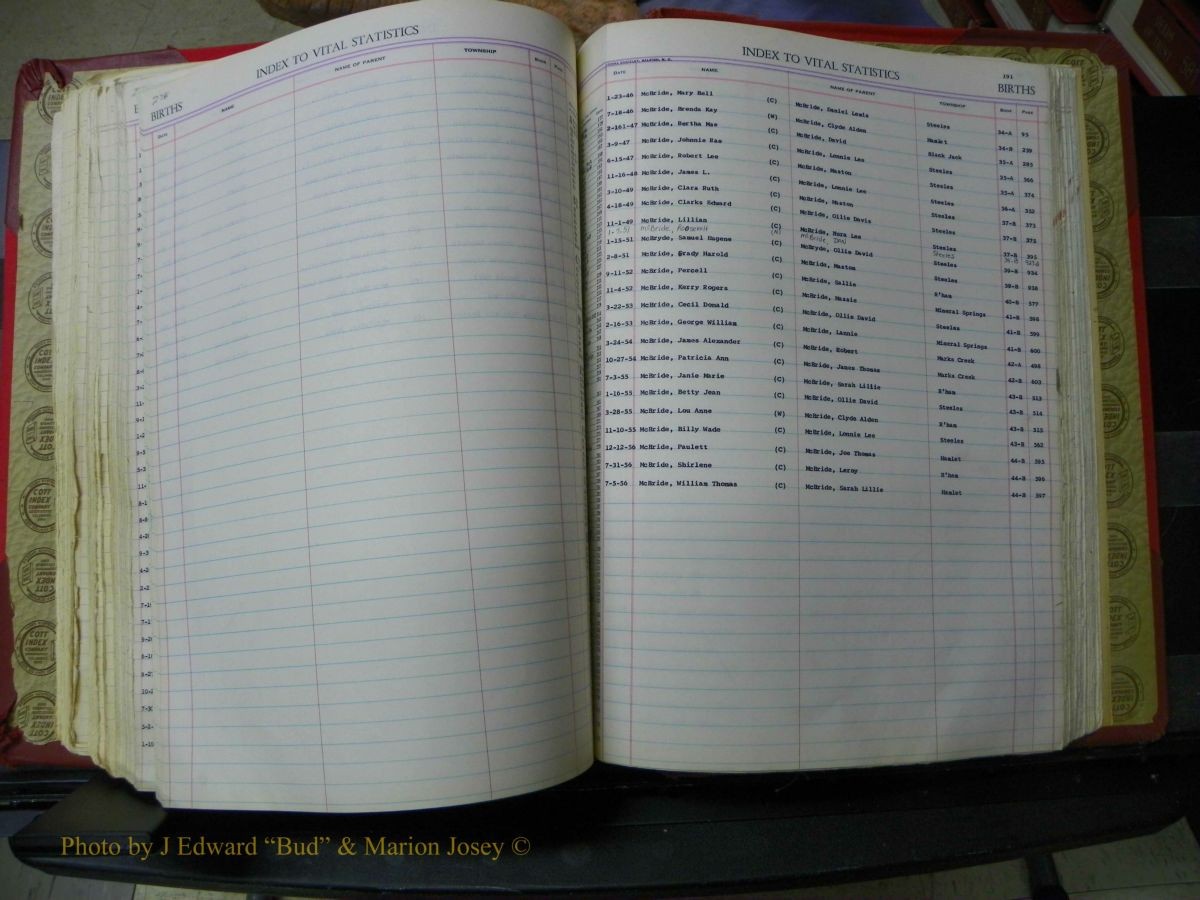 INDEX TO VITAL STATISTICS
BIRTHS
DATE NAME NAME OF PARENT TOWNSHIP BOOK PAGE
INDEX TO VITAL STATISTICS
191
BIRTHS
DATE NAME NAME OF PARENT TOWNSHIP BOOK PAGE
1-23-46 McBride, Mary Bell (C) McBride, Daniel Lewis Steeles 34-A 95
7-18-46 McBride, Brenda Kay (W) McBride, Clyde Alden Hamlet 34-B 239
2-161-47 McBride, Bertha Mae (C) McBride, David Black Jack 35-A 285
3-9-47 McBride, Johnnie Rae (C) McBride, Lonnie Lee Steeles 35-A 366
6-15-47 McBride, Robert Lee (C) McBride, Maston Steeles 35-A 374
11-16-48 McBride, James L. (C) McBride, Lonnie Lee Steeles 36-A 352
3-10-49 McBride, Clara Ruth (C) McBride, Maston Steeles 37-B 373
4-18-49 McBride, Clarks Edward (C) McBride, Ollie Davis Steeles 37-B 378
11-1-49 McBride, Lillian (C) McBride, Nora Lee Steeles 37-B 395
McBride, Roosevelt (N) McBride, Dan Steeles 39-B
1-15-51 McBryde, Samuel Eugene (C) McBryde, Ollie David Steeles 39-B 934
2-8-51 McBride, Grady Harold (C) McBride, Maston Steeles 39-B 938
9-11-52 McBride, Percell (C) McBride, Sallie R'ham 40-B 577
11-4-52 McBride, Kerry Rogers (C) McBride, Massie Mineral Springs 41-B 598
3-22-53 McBride, Cecil Donald (C) McBride, Ollie David Steeles 41-B 599
2-16-53 McBride, George William (C) McBride, Lannie Mineral Springs 41-B 600
3-24-54 McBride, James Alexander (C) McBride, Robert Marks Creek 42-A 498
10-27-54 McBride, Patricia Ann (C) McBride, James Thomas Marks Creek 42-B 603
7-3-55 McBride, Janie Marie (C) McBride, Sarah Lillie R'ham 43-B 513
1-16-55 McBride, Betty Jean (C) McBride, Ollie David Steeles 43-B 514
3-28-55 McBride, Lou Anne (W) McBride, Clyde Alden R'ham 43-B 515
11-10-55 McBride, Billy Wade (C) McBride, Lonnie Lee Steeles 43-B 562
12-12-56 McBride, Paulett (C) McBride, Joe Thomas Hamlet 44-B 595
7-31-56 McBride, Shirlene (C) McBride, Leroy R'ham 44-B 596
7-5-56 McBride, William Thomas (C) McBride, Sarah Lillie Hamlet 44-B 597
COTT INDEX COMPANY
Photo by J Edward “Bud” & Marion Josey ©